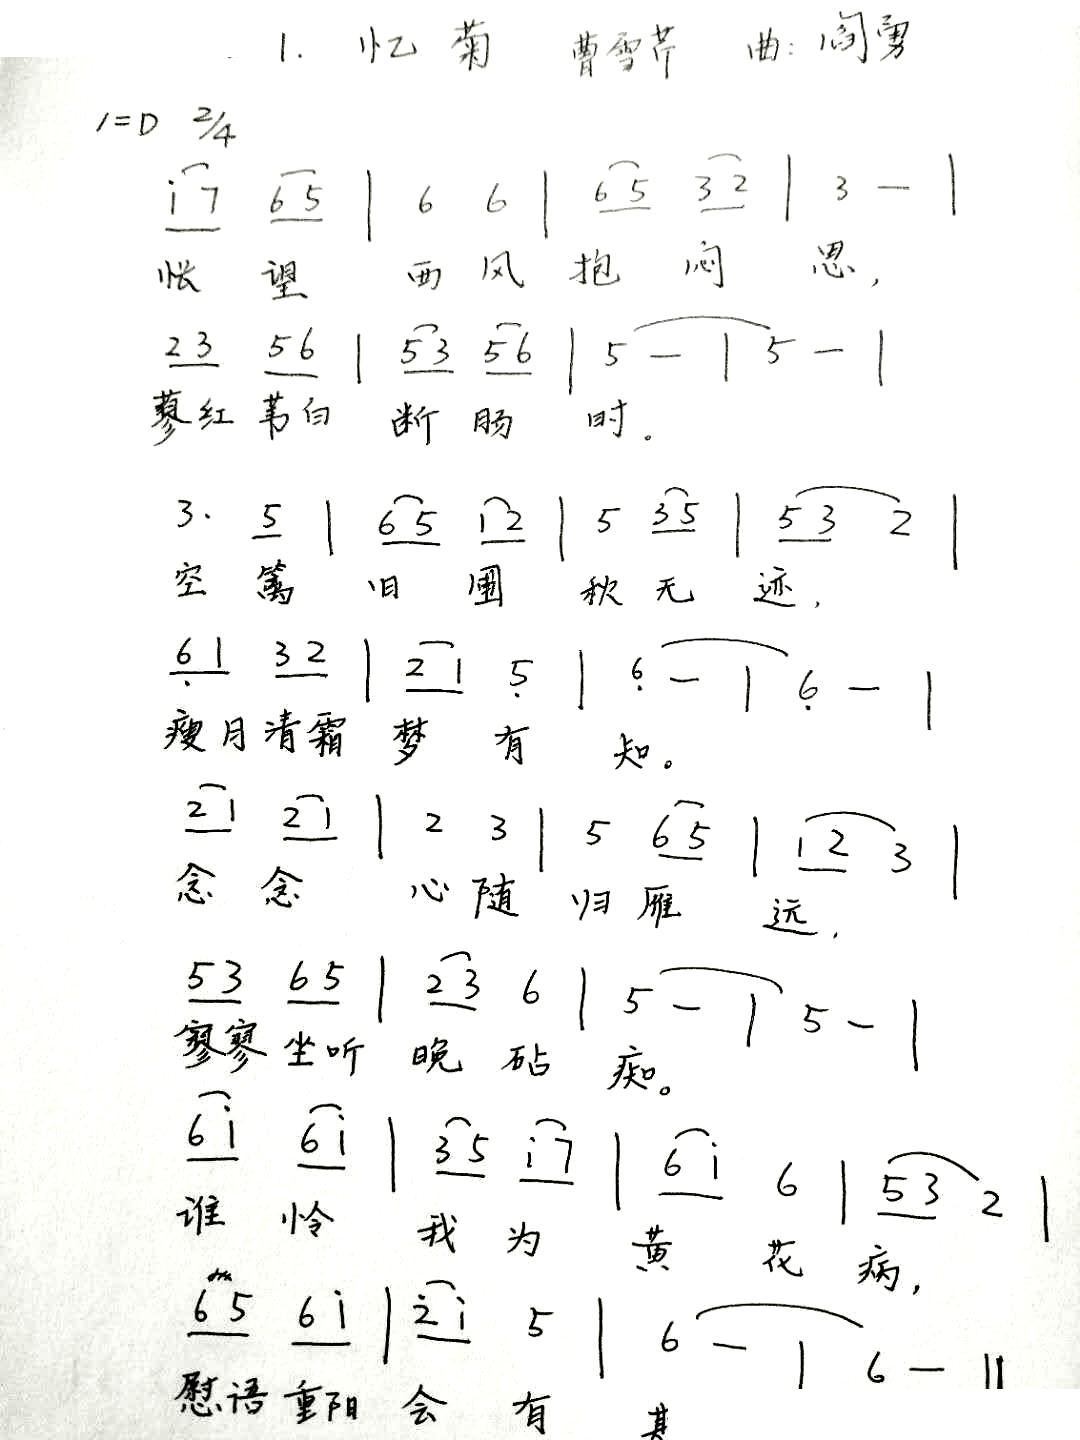 1. 忆菊 曹雪芹 曲:阎勇
1=D 2/4
i7 65 | 6 6 | 65 32 | 3 — |
怅望 西风抱闷思,
23 56 | 53 56 | 5 — | 5 — |
蓼红苇白断肠时。
3. 5 | 65 i2 | 5 35 | 53 2 |
空篱旧圃秋无迹,
61 32 | 21 5 | 6 — | 6 — |
瘦月清霜梦有知。
21 21 | 2 3 | 5 65 | 12 3 |
念念心随归雁远,
53 65 | 23 6 | 5 — | 5 — |
寥寥坐听晚砧痴。
6i 6i | 35 i7 | 6i 6 | 53 2 |
谁怜我为黄花病,
65 6i | 2i 5 | 6 — | 6 — ||
慰语重阳会有